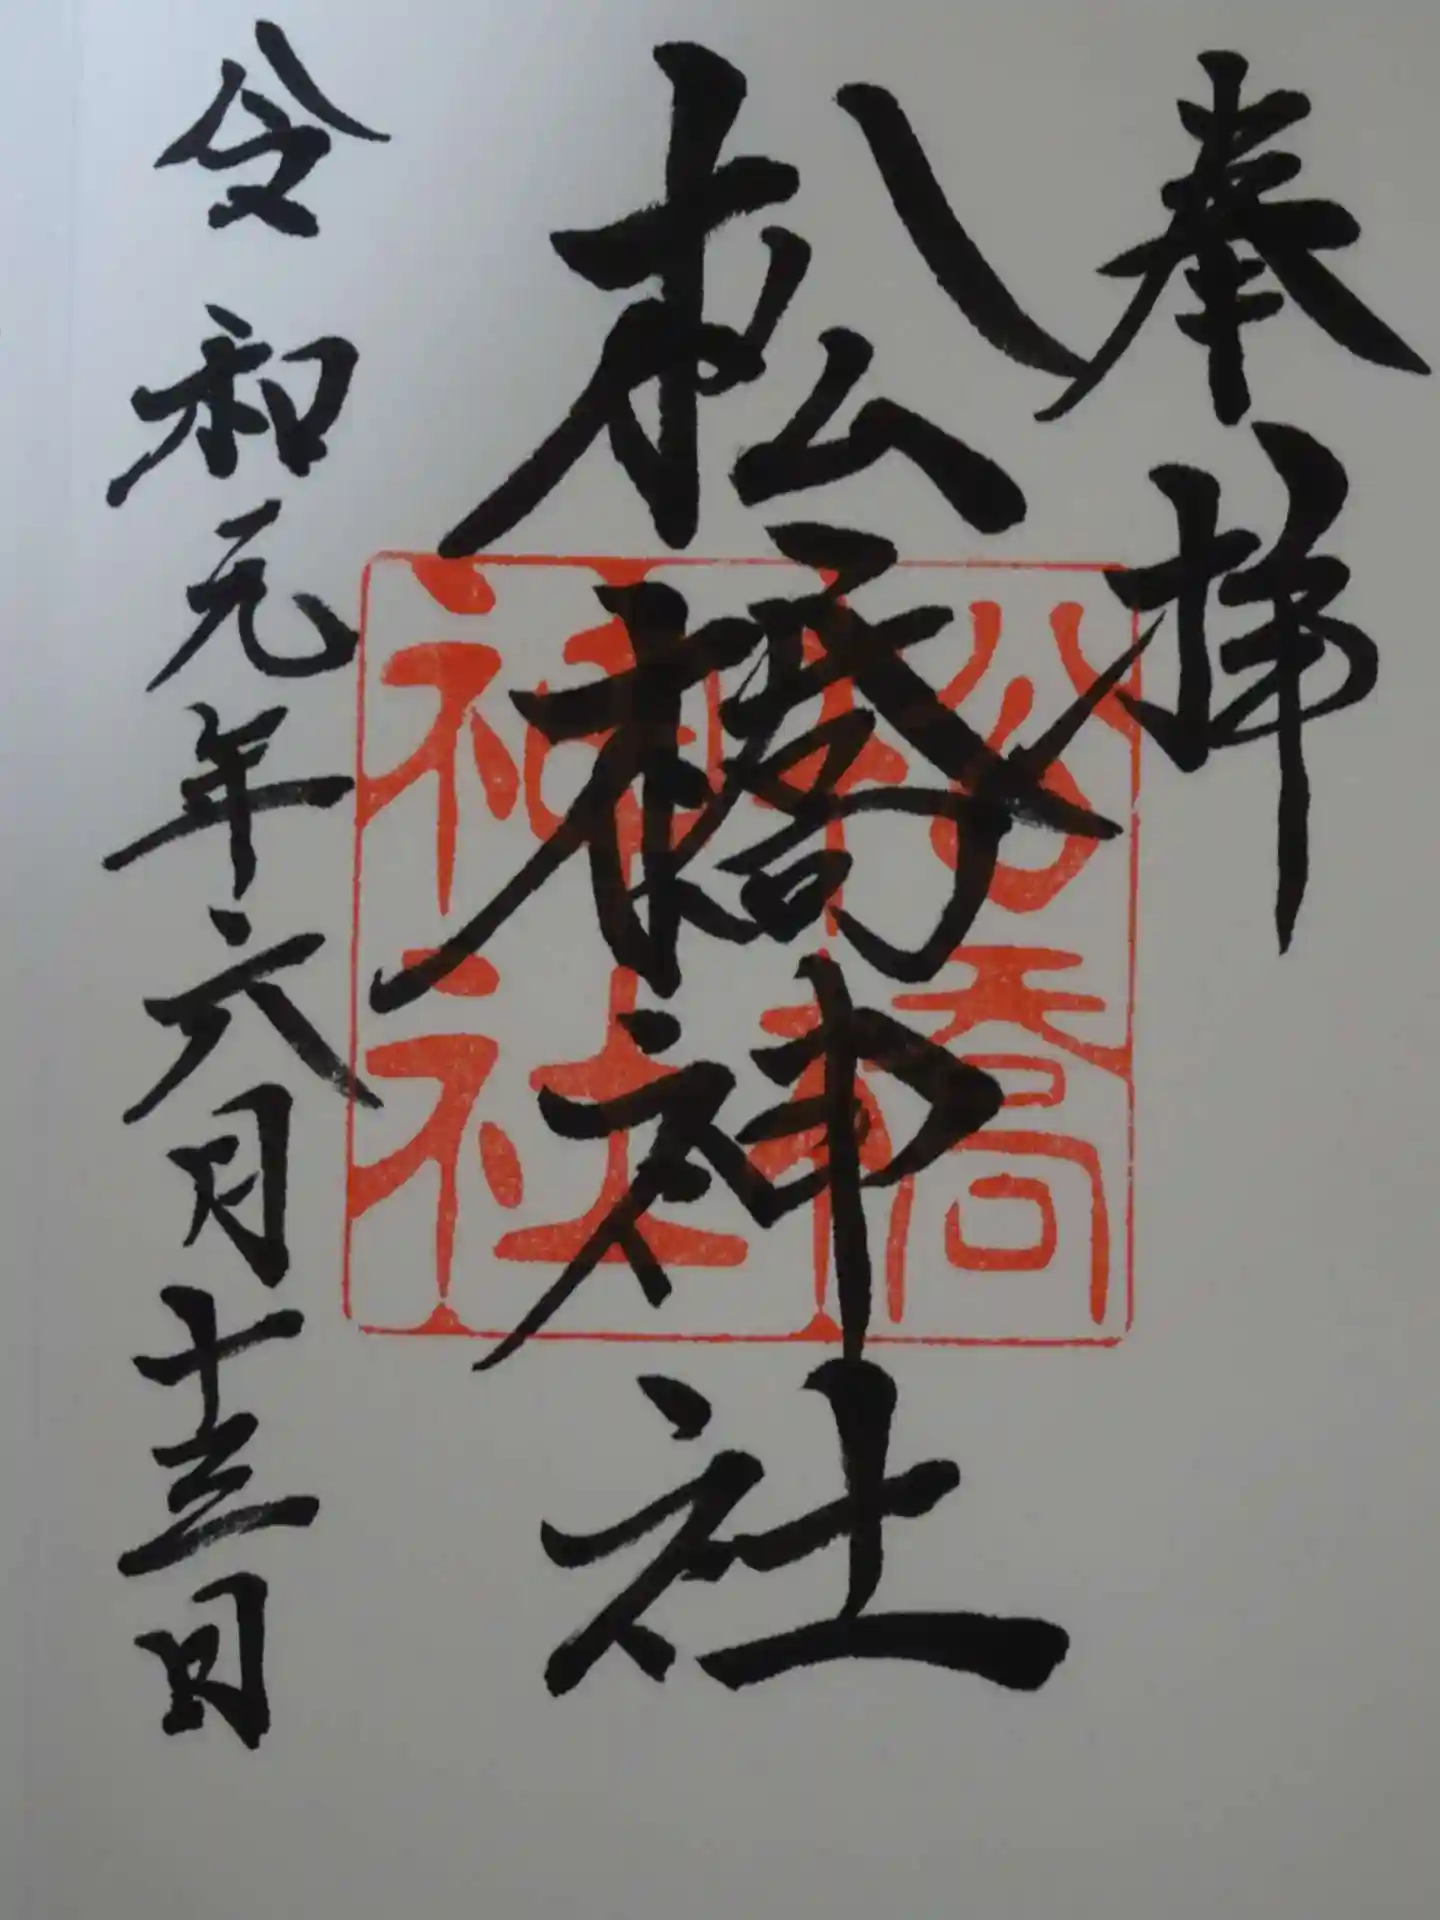 奉拝
松橋神社
松橋
神社
令和元年六月十三日